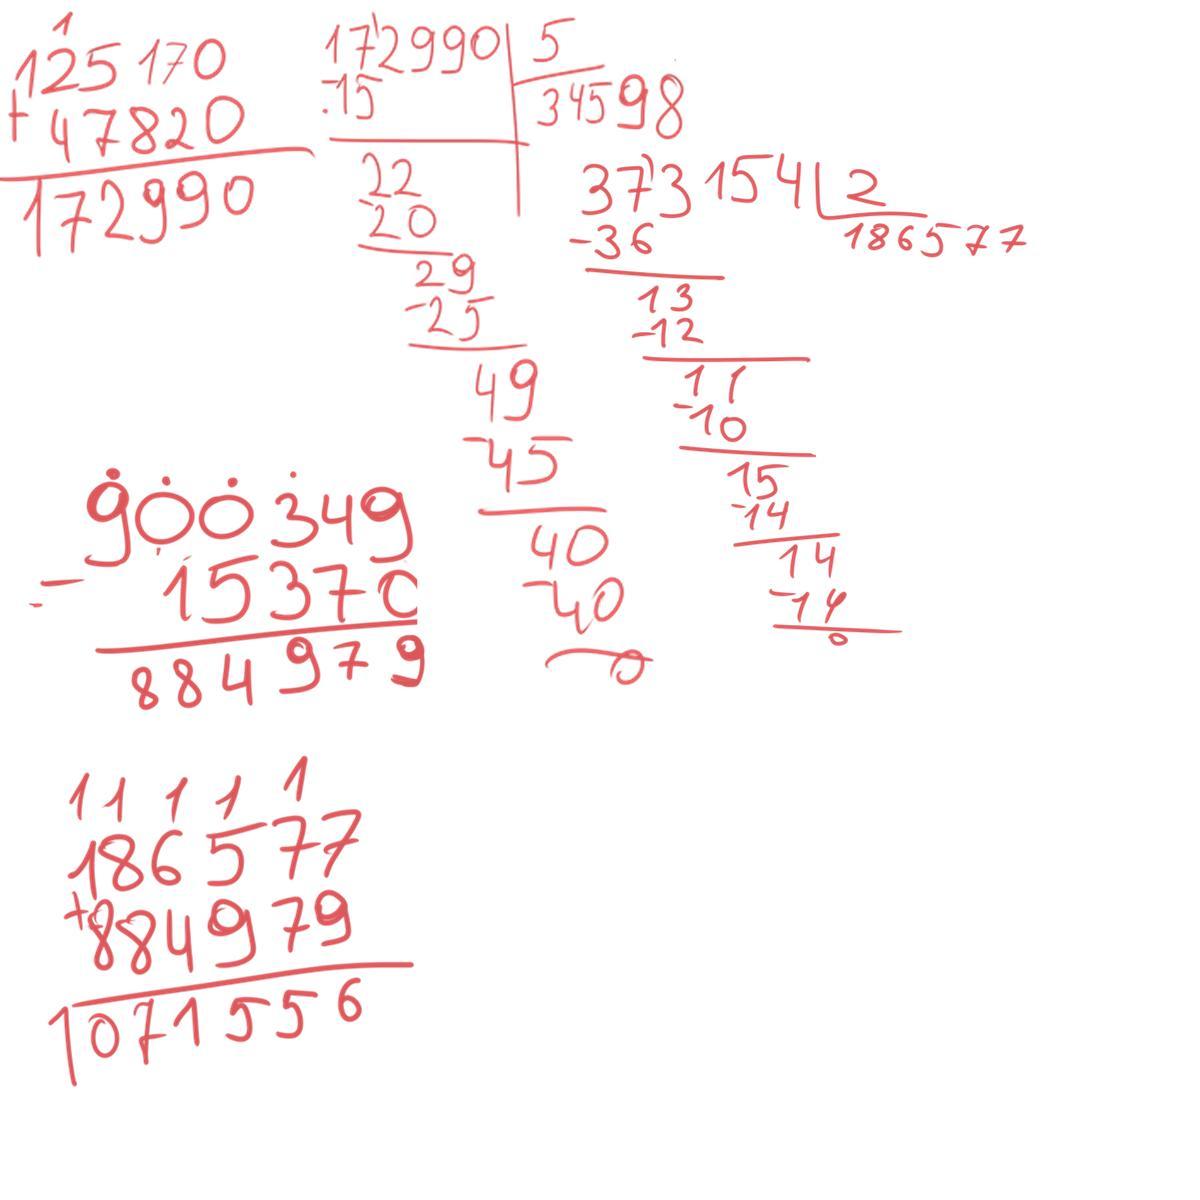 1
125 170
+ 47820
172990
172990 5
-15 34598
22
-20
29
-25
49
-45
40
-40
0
373 154 2
-36 186577
13
-12
11
-10
15
-14
14
-14
0
900349
- 15370
884979
1 1 1 1 1
186577
+884979
1071556